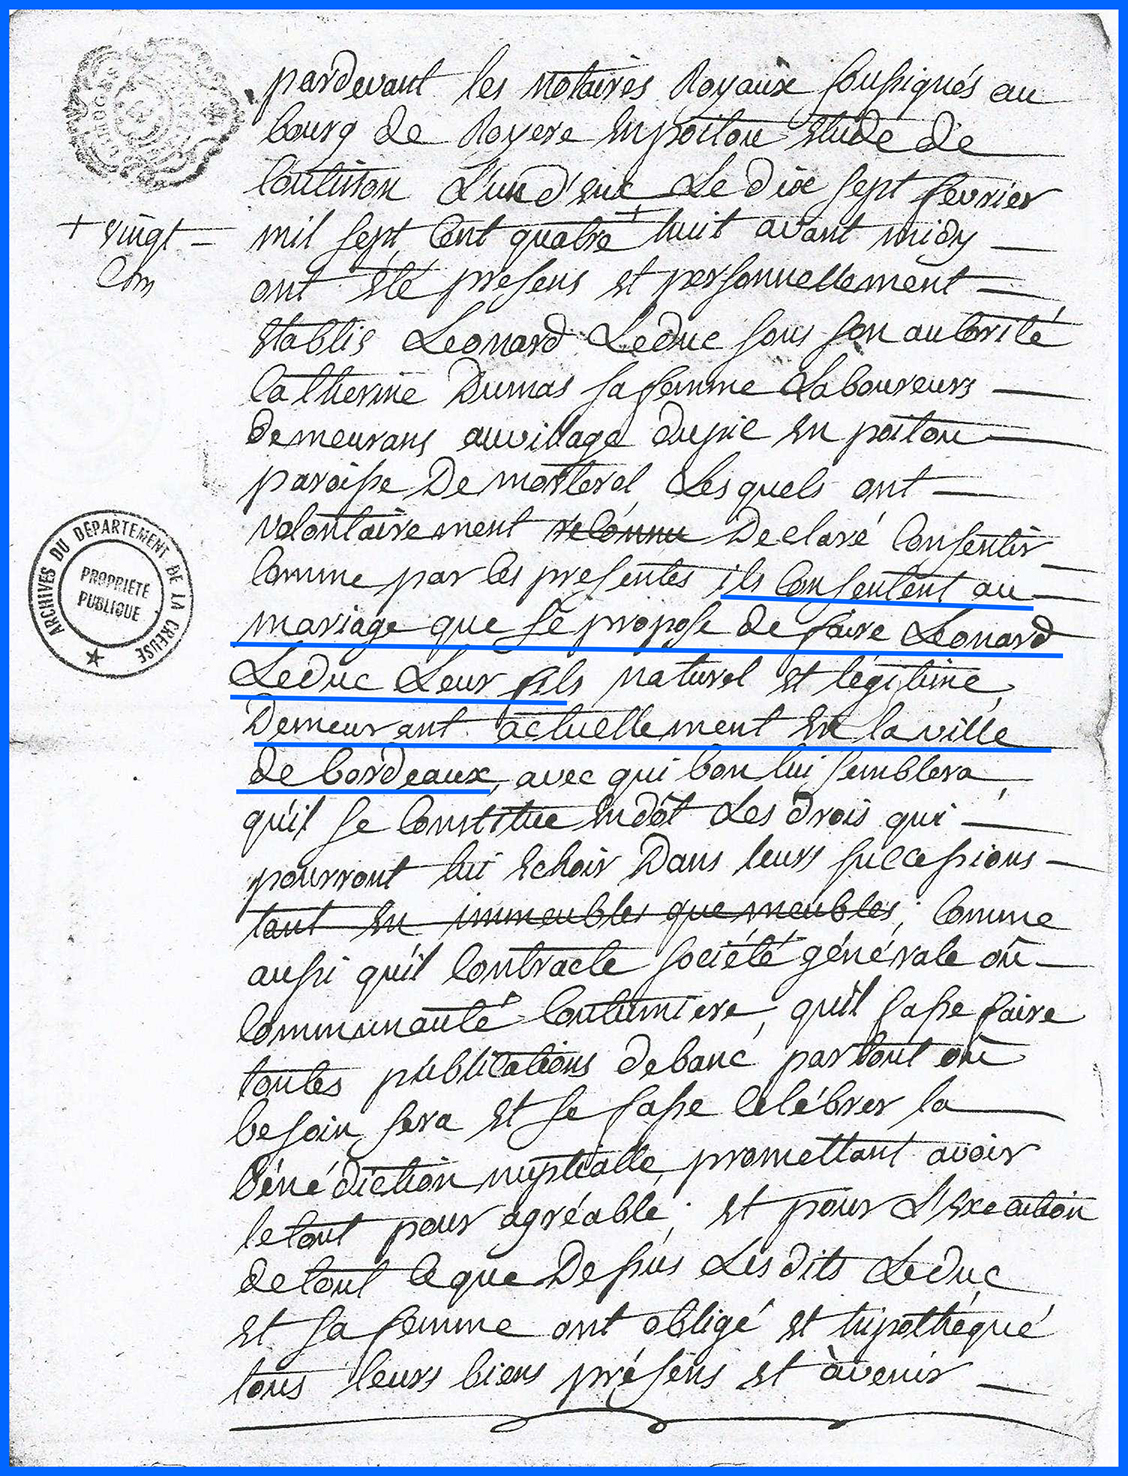 pardevant les notaires Royaux soussignés au
bourg de Royere en poitou Etude de
Coutisson L'un d'eux, Le dix sept fevrier
mil sept Cent quatre + huit avant midy
+ vingt
ont été presens et personnellement
Etablis Leonard Leduc sous son autorité
Catherine Dumas sa femme Laboureurs
demeurans au village dupic en poitou
paroisse De monterol Lesquels ont
volontairement reconnu Declaré Consentir
Comme par les presentes ils Consentent au
mariage que se propose de faire Leonard
Leduc Leur fils naturel et légitime
Demeurant actuellement en la ville
de bordeaux, avec qui bon lui semblera,
qu'il se Constitue en dot Les drois qui
pourront lui Echoir Dans leurs successions
tant en immeubles que meubles; Comme
aussi qu'il Contracte société générale ou
Communauté Coutumiere, qu'il fasse faire
toutes publications de banc partout où
besoin sera et se fasse Célébrer la
bénédiction nuptialle, promettant avoir
le tout pour agréable; et pour L'Execution
de tout Ce que Dessus Les dits Leduc
et sa femme ont obligé et hipothéqué
tous leurs biens présens et avenir
ARCHIVES DU DÉPARTEMENT DE LA CREUSE
PROPRIÉTÉ
PUBLIQUE